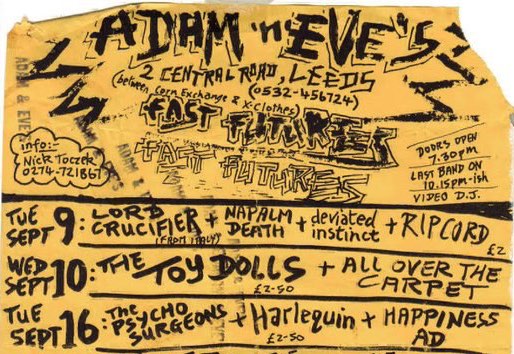 ADAM 'n' EVE'S
2 CENTRAL ROAD, LEEDS
(between Corn Exchange & X-clothes) (0532-456724)
FAST FUTURES
FAST FUTURES
info:-
Nick Toczek
0274-721867
DOORS OPEN
7.30pm
LAST BAND ON
10.15pm-ish
VIDEO D.J.
ADAM & EVE
ADAM
TUE SEPT 9: LORD CRUCIFIER (FROM ITALY) + NAPALM DEATH + deviated instinct + RIPCORD £2
WED SEPT 10: THE TOY DOLLS + ALL OVER THE CARPET £2-50
TUE SEPT 16: The PSYCHO SURGEONS + Harlequin + HAPPINESS AD £2-50